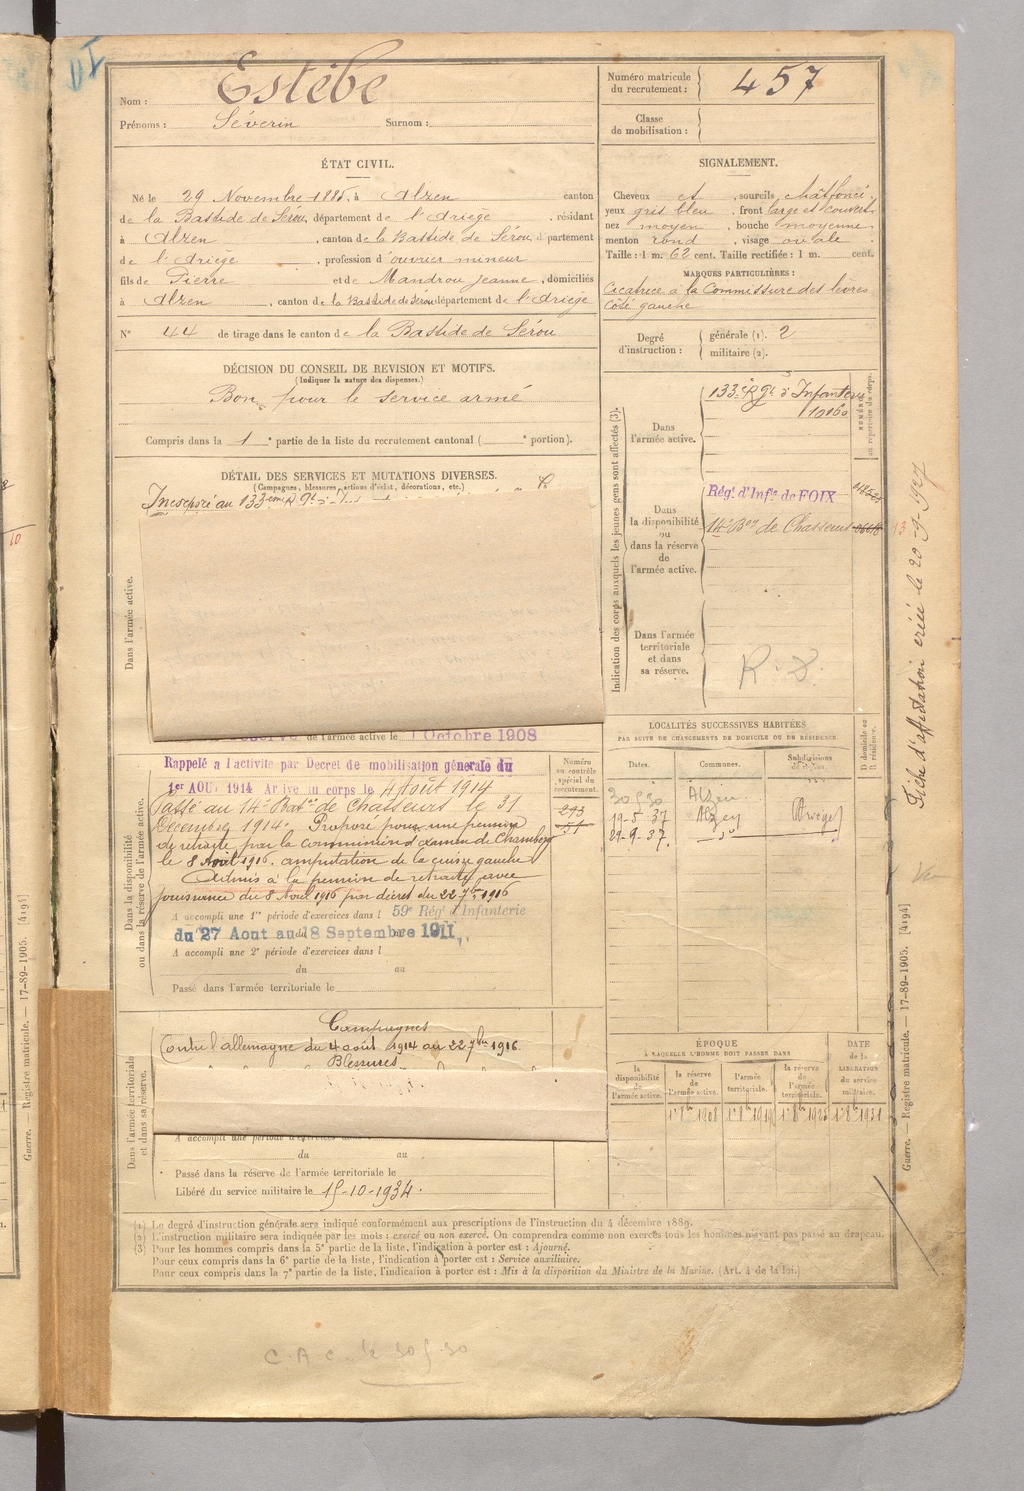 VI
Nom : Estèbe
Prénoms : Séverin Surnom :
Numéro matricule du recrutement : 457
Classe de mobilisation :
ÉTAT CIVIL.
Né le 29 Novembre 1885, à Alzen canton
de la Bastide de Sérou, département de l'Ariège, résidant
à Alzen, canton de la Bastide de Sérou, département
de l'Ariège, profession d'ouvrier mineur
fils de Pierre et de Mandrou Jeanne, domiciliés
à Alzen, canton de la Bastide de Sérou département de l'Ariège
N° 44 de tirage dans le canton de la Bastide de Sérou
SIGNALEMENT.
Cheveux et, sourcils chât foncé,
yeux gris bleu, front large et couvert
nez moyen, bouche moyenne
menton rond, visage ovale.
Taille : 1 m. 62 cent. Taille rectifiée : 1 m. cent.
MARQUES PARTICULIÈRES :
Cicatrice à la Commissure des lèvres
Côté gauche
Degré d'instruction : générale (1). 2
militaire (2).
DÉCISION DU CONSEIL DE REVISION ET MOTIFS.
(Indiquer la nature des dispenses.)
Bon pour le service armé
Compris dans la 1e partie de la liste du recrutement cantonal ( e portion).
DÉTAIL DES SERVICES ET MUTATIONS DIVERSES.
(Campagnes, blessures, actions d'éclat, décorations, etc.)
Incorporé au 133eme R Gt
Dans l'armée active.
réserve de l'armée active le 1 Octobre 1908
Indication des corps auxquels les jeunes gens sont affectés (3).
NUMÉRO au répertoire du corps.
Dans l'armée active.
133e Rgt d'Infanterie
10160
Dans la disponibilité ou dans la réserve de l'armée active.
Régt d'Infie de FOIX
14e Bon de Chasseurs
13
Dans l'armée territoriale et dans sa réserve.
R-8.
Fiche d'affectation créée le 20-9-1927
LOCALITÉS SUCCESSIVES HABITÉES
PAR SUITE DE CHANGEMENTS DE DOMICILE OU DE RÉSIDENCE.
Dates. Communes. Subdivisions de région. D domicile ou R résidence.
30 5 30 Alzen
19-5-37 Alzen (Ariège)
29-9-37 - d° -
Dans la disponibilité ou dans la réserve de l'armée active.
Rappelé à l'activité par Décret de mobilisation générale du
1er AOUT 1914 Arrivé au corps le 4 Août 1914
Passé au 14e Baton de Chasseurs le 31
Décembre 1914. Proposé pour une pension
de retraite par la commission d'examen de Chambéry
le 8 Août 1916. amputation de la cuisse gauche
Admis à la pension de retraite avec
jouissance du 8 Août 1916 par décret du 22 7bre 1916
Numéro au contrôle spécial du recrutement.
293
51
A accompli une 1re période d'exercices dans l 59e Régt d'Infanterie
du 27 Aout au 18 Septembre 1911
A accompli une 2e période d'exercices dans l
du au
Passé dans l'armée territoriale le
Dans l'armée territoriale et dans sa réserve.
Campagnes
Contre l'allemagne du 4 août 1914 au 22 7bre 1916.
Blessures
A accompli une période d'exercices dans
du au
Passé dans la réserve de l'armée territoriale le
Libéré du service militaire le 15-10-1934.
ÉPOQUE
À LAQUELLE L'HOMME DOIT PASSER DANS
la disponibilité de l'armée active. la réserve de l'armée active. l'armée territoriale. la réserve de l'armée territoriale.
DATE de la LIBÉRATION du service militaire.
1er 8bre 1908 1er 8bre 1919 1er 8bre 1925 1er 8bre 1931
(1) Le degré d'instruction générale sera indiqué conformément aux prescriptions de l'Instruction du 4 décembre 1889.
(2) L'instruction militaire sera indiquée par les mots : exercé ou non exercé. On comprendra comme non exercés tous les hommes n'ayant pas passé au drapeau.
(3) Pour les hommes compris dans la 5e partie de la liste, l'indication à porter est : Ajourné.
Pour ceux compris dans la 6e partie de la liste, l'indication à porter est : Service auxiliaire.
Pour ceux compris dans la 7e partie de la liste, l'indication à porter est : Mis à la disposition du Ministre de la Marine. (Art. 4 de la loi.)
Guerre. — Registre matricule. — 17-89-1905. [4194]
Guerre. — Registre matricule. — 17-89-1905. [4194]
C.A.C. le 30 5-30